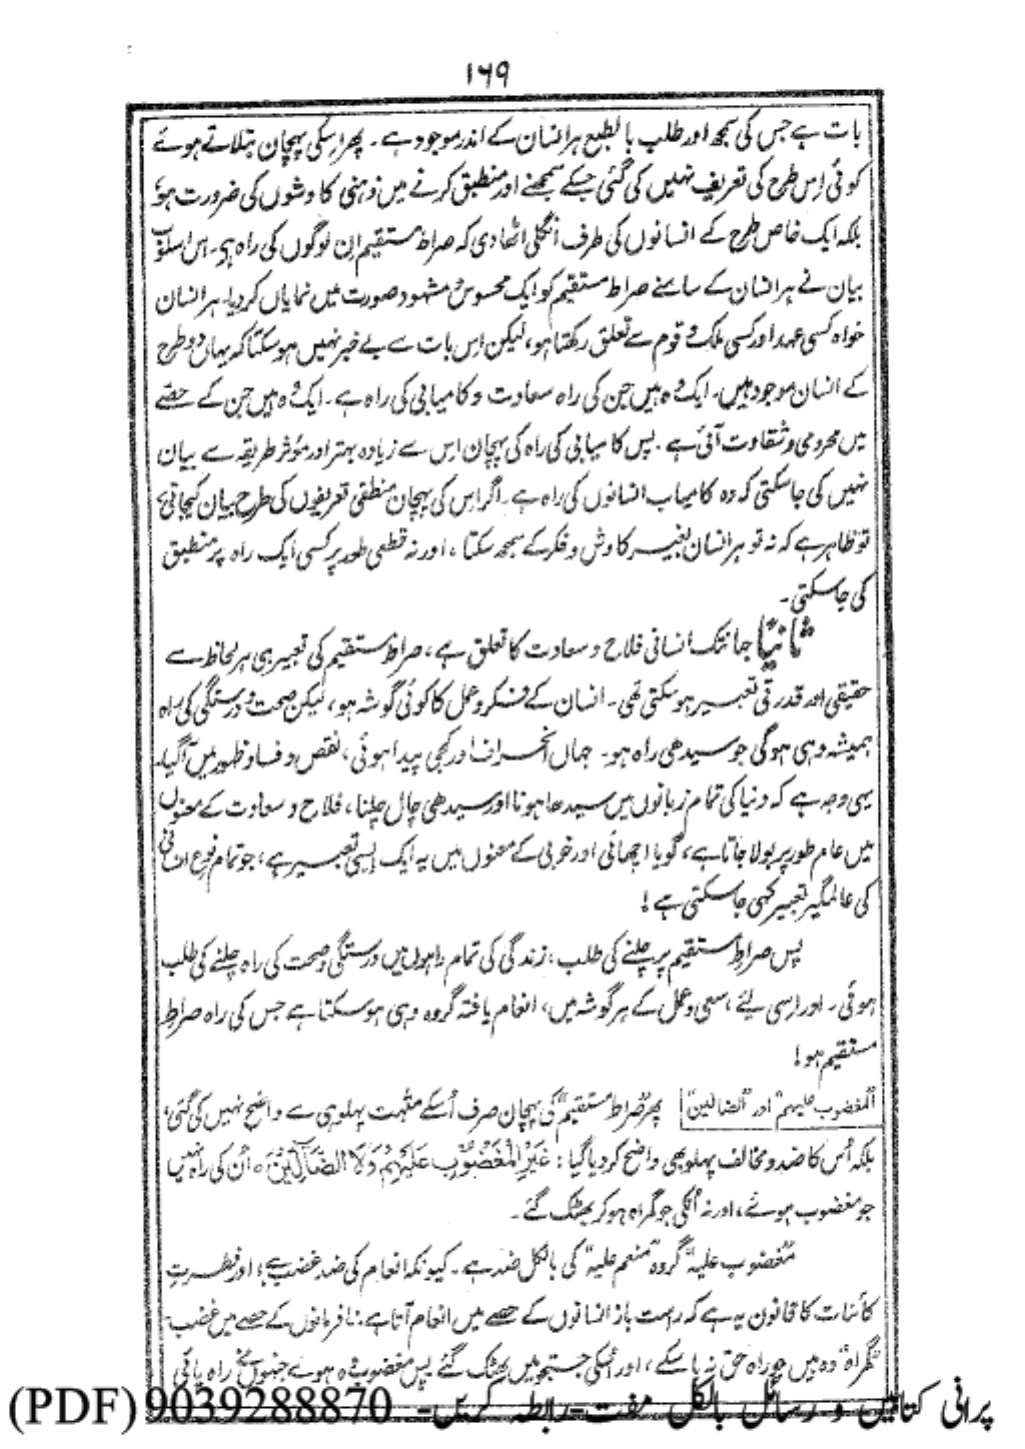 ۱۶۹
بات ہے جس کی سمجھ اور طلب بالطبع ہر انسان کے اندر موجود ہے۔ پھر اسکی پہچان بتلاتے ہوئے
کوئی اِس طرح کی تعریف نہیں کی گئی جسکے سمجھنے اور منطبق کرنے میں ذہنی کاوشوں کی ضرورت ہو
بلکہ ایک خاص طرح کے انسانوں کی طرف انگلی اٹھا دی کہ صراط مستقیم اِن لوگوں کی راہ ہے۔ اس اسلوب
بیان نے ہر انسان کے سامنے صراط مستقیم کو ایک محسوس و مشہود صورت میں نمایاں کردیا۔ ہر انسان
خواہ کسی عہد اور کسی ملک و قوم سے تعلق رکھتا ہو، لیکن اِس بات سے بے خبر نہیں ہوسکتا کہ یہاں دو طرح
کے انسان موجود ہیں۔ ایک وہ ہیں جن کی راہ سعادت و کامیابی کی راہ ہے۔ ایک وہ ہیں جن کے حصے
میں محرومی و شقاوت آئی ہے۔ پس کامیابی کی راہ کی پہچان اِس سے زیادہ بہتر اور مؤثر طریقہ سے بیان
نہیں کی جاسکتی کہ وہ کامیاب انسانوں کی راہ ہے۔ اگر اِس کی پہچان منطقی تعریفوں کی طرح بیان کیجاتی
تو ظاہر ہے کہ نہ تو ہر انسان بغیر کاوش و فکر کے سمجھ سکتا، اور نہ قطعی طور پر کسی ایک راہ پر منطبق
کی جاسکتی۔
ثانیًا جہانتک انسانی فلاح و سعادت کا تعلق ہے، صراطِ مستقیم کی تعبیر ہی ہر لحاظ سے
حقیقی اور قدرتی تعبیر ہوسکتی تھی۔ انسان کے فکر و عمل کا کوئی گوشہ ہو، لیکن صحت و درستگی کی راہ
ہمیشہ وہی ہوگی جو سیدھی راہ ہو۔ جہاں انحراف اور کجی پیدا ہوئی، نقص و فساد ظہور میں آگیا۔
یہی وجہ ہے کہ دنیا کی تمام زبانوں میں سیدھا ہونا اور سیدھی چال چلنا، فلاح و سعادت کے معنوں
میں عام طور پر بولا جاتا ہے، گویا اچھائی اور خوبی کے معنوں میں یہ ایک ایسی تعبیر ہے، جو تمام نوع انسانی
کی عالمگیر تعبیر کہی جاسکتی ہے!
پس صراطِ مستقیم پر چلنے کی طلب، زندگی کی تمام راہوں میں درستگی و صحت کی راہ چلنے کی طلب
ہوئی۔ اور اِسی لیے، سعی و عمل کے ہر گوشہ میں، انعام یافتہ گروہ وہی ہوسکتا ہے جس کی راہ صراطِ
مستقیم ہو!
"المغضوب علیہم" اور "الضالین" پھر "صراط مستقیم" کی پہچان صرف اُسکے مثبت پہلو ہی سے واضح نہیں کی گئی،
بلکہ اُس کا ضد و مخالف پہلو بھی واضح کر دیا گیا: غَيْرِ الْمَغْضُوْبِ عَلَيْهِمْ وَلَا الضَّآلِّيْنَ ہ اُن کی راہ نہیں
جو مغضوب ہوئے، اور نہ اُنکی جو گمراہ ہو کر بھٹک گئے۔
"مغضوب علیہ" گروہ "منعم علیہ" کی بالکل ضد ہے۔ کیونکہ انعام کی ضد غضب ہے، اور فطرتِ
کائنات کا قانون یہ ہے کہ راست باز انسانوں کے حصے میں انعام آتا ہے، نافرمانوں کے حصے میں غضب۔
"گمراہ" وہ ہیں جو راہ حق نہ پا سکے، اور اُسکی جستجو میں بھٹک گئے پس مغضوب وہ ہوئے جنہوں نے راہ پائی
پرانی کتابیں و رسائل بالکل مفت۔رابطہ کریں۔ 9039288870 (PDF)